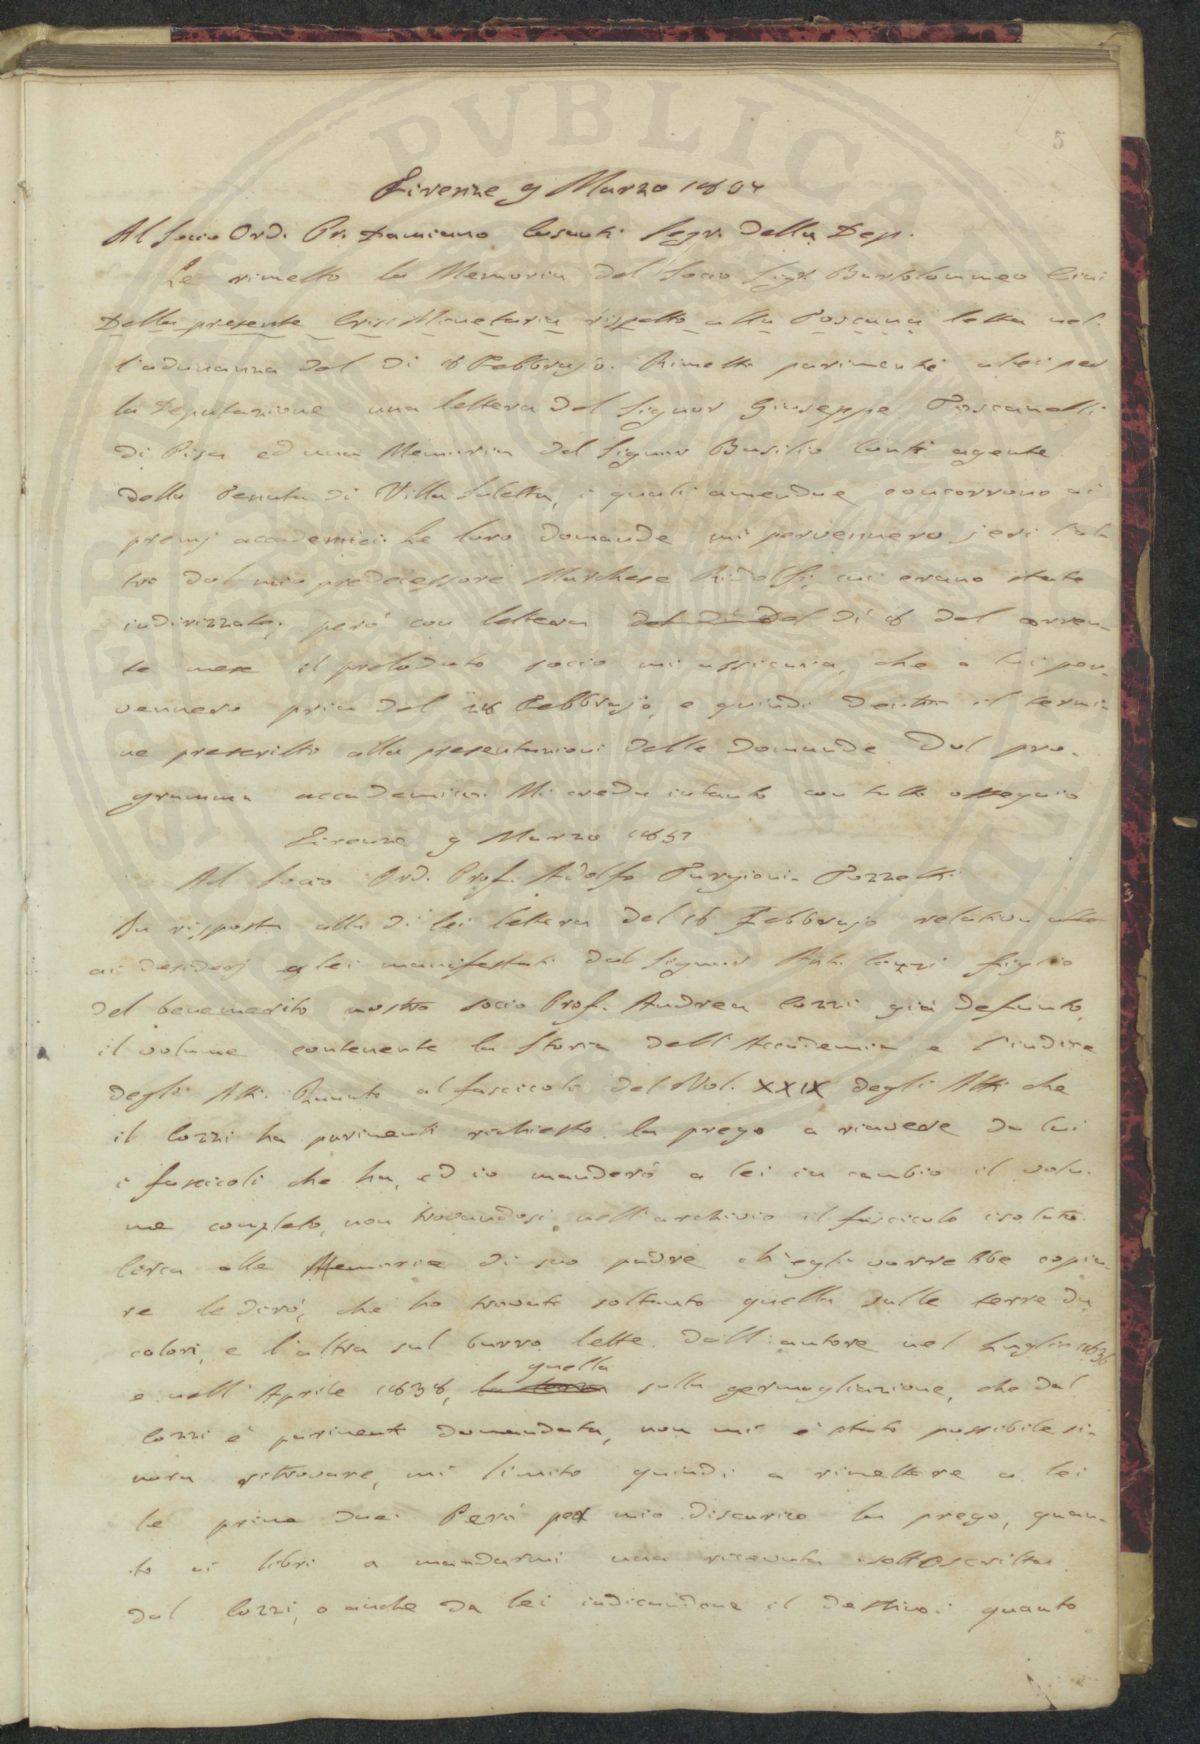 PVBLICA
5
Firenze 9 Marzo 1857
Al Socio Ord. Pr. Damiano Casanti Segr. della Dep.
Le rimetto la Memoria del Socio Sigr. Bartolommeo Cini
Della presente Crisi Monetaria rispetto alla Toscana letta nel-
l'adunanza del dì 8 Febbrajo. Rimetto parimente a lei per
la Deputazione una lettera del Signor Giuseppe Toscanelli
di Pisa ed una Memoria del Signor Basilio Conti agente
della Tenuta di Villa Saletta, i quali amendue concorrono ai
premj accademici. Le loro domande mi pervennero jeri l'al
tro dal mio predecessore Marchese Ridolfi, cui erano state
indirizzate; però con lettera del dì 8 del corren-
te mese il prelodato socio mi assicura, che a lui per-
vennero pria del 28 Febbrajo, e quindi dentro il termi-
ne prescritto alla presentazioni delle domande dal pro-
gramma accademico. Mi creda intanto con tutto ossequio
Firenze 9 Marzo 1857
Al Socio Ord. Prof. Adolfo Targioni-Tozzetti
In risposta alla di lei lettera del 16 Febbrajo relativa
ai desiderj a lei manifestati dal Signor Ant. Cozzi figlio
del benemerito nostro socio Prof. Andrea Cozzi già defunto,
il volume contenente la Storia dell'Accademia e l'indice
degli Atti. Quanto al fascicolo del Vol. XXIX degli Atti che
il Cozzi ha parimenti richiesto la prego a riavere da lui
i fascicoli che ha, ed io manderò a lei in cambio il volu-
me completo, non trovandosi nell'archivio il fascicolo isolato.
Circa alle Memorie di suo padre ch'egli vorrebbe copia-
re le dirò, che ho trovato soltanto quella sulle terre da
colori, e l'altra sul burro lette dall'autore nel Luglio 1836
e nell'Aprile 1838, quella sulla germogliazione, che dal
Cozzi è parimenti domandata, non mi è stato possibile si-
nora ritrovare, mi limito quindi a rimettere a lei
le prime due. Però per mio discarico la prego, quan-
to ai libri a mandarmi una ricevuta sottoscritta
dal Cozzi, o anche da lei indicandone il destino; quanto